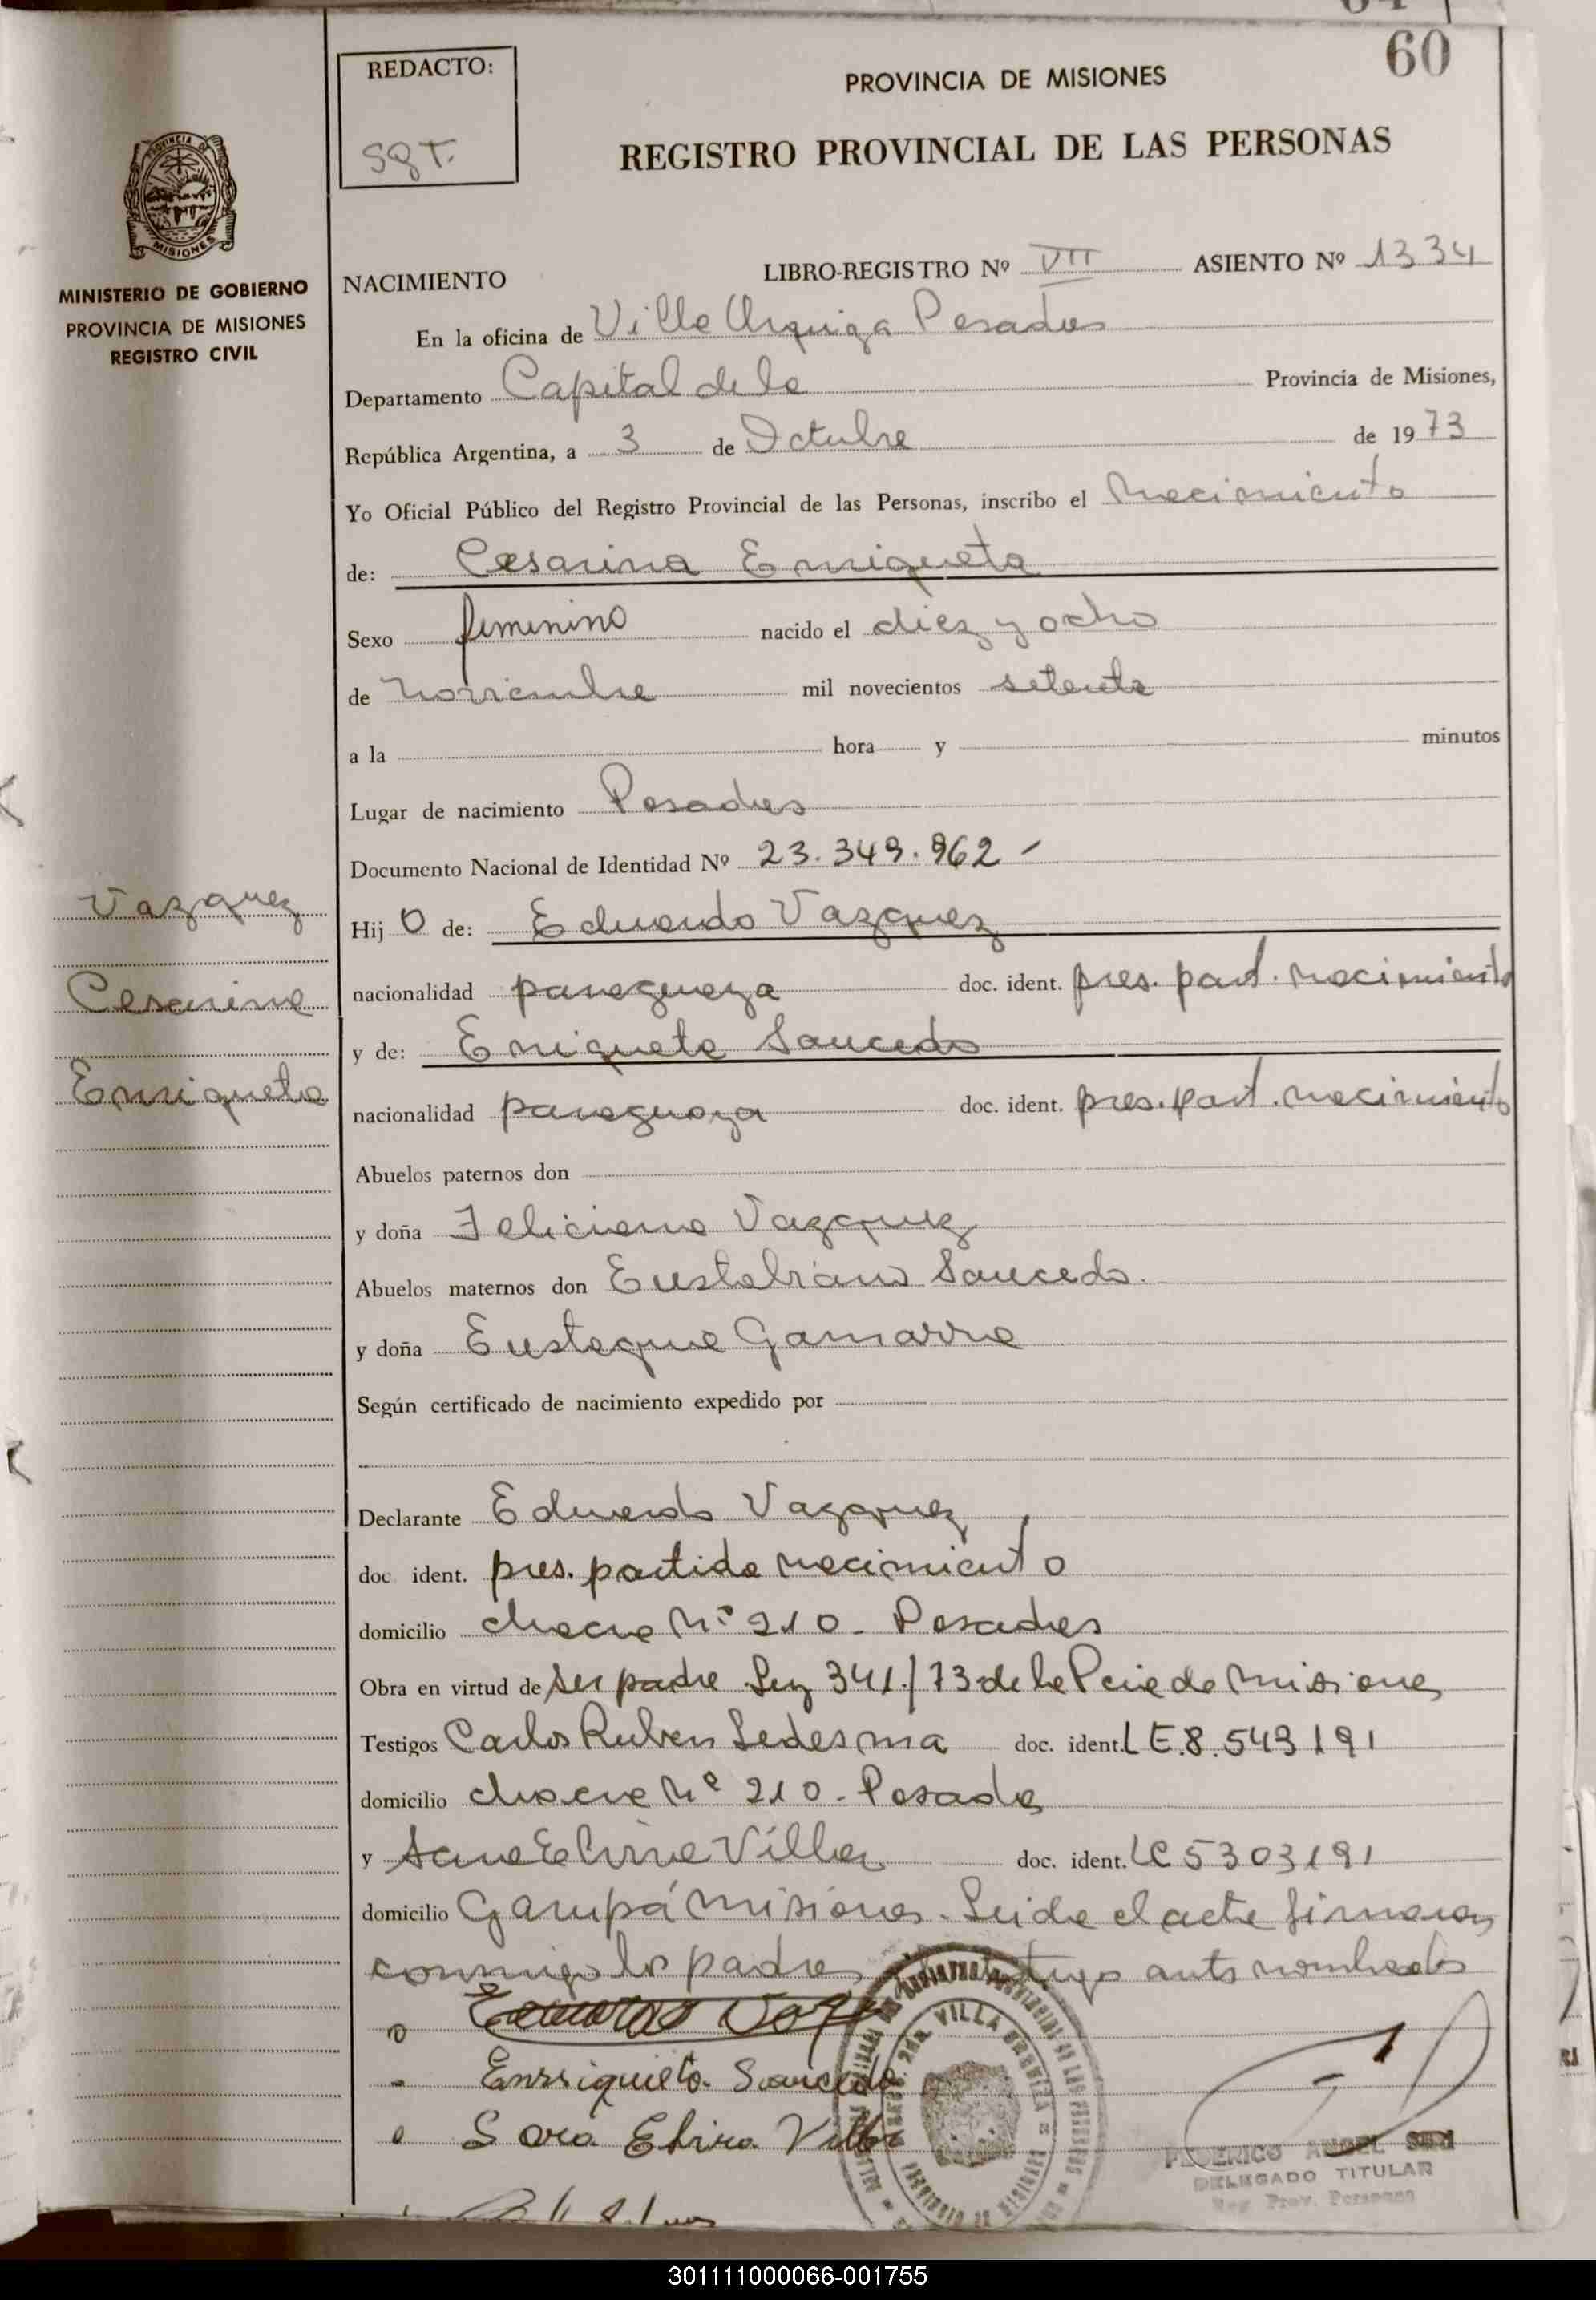 60
REDACTO:
SgT.
PROVINCIA DE MISIONES
REGISTRO PROVINCIAL DE LAS PERSONAS
MINISTERIO DE GOBIERNO
PROVINCIA DE MISIONES
REGISTRO CIVIL
NACIMIENTO LIBRO-REGISTRO Nº VII ASIENTO Nº 1334
En la oficina de Villa Urquiza Posadas
Departamento Capital de la Provincia de Misiones,
República Argentina, a 3 de Octubre de 1973
Yo Oficial Público del Registro Provincial de las Personas, inscribo el Nacimiento
de: Cesarina Enriqueta
Sexo femenino nacido el diez y ocho
de noviembre mil novecientos setenta
a la hora y minutos
Lugar de nacimiento Posadas
Documento Nacional de Identidad Nº 23.349.962 -
Vazquez
Cesarina
Enriqueta
Hij O de: Eduardo Vazquez
nacionalidad paraguaya doc. ident. pres. part. nacimiento
y de: Enriqueta Saucedo
nacionalidad paraguaya doc. ident. pres. part. nacimiento
Abuelos paternos don
y doña Feliciana Vazquez
Abuelos maternos don Saucedo.
y doña Gamarra
Según certificado de nacimiento expedido por
Declarante Eduardo Vazquez
doc ident. pres. partida nacimiento
domicilio chacra Nº 210 - Posadas
Obra en virtud de ser padre Ley 341/73 de la Pcia de Misiones
Testigos Carlos Ruben Ledesma doc. ident. LE.8.543191
domicilio chacra Nº 210 - Posadas
y Sara Elvira Villa doc. ident. LC 5303191
domicilio Garupá Misiones. Leida el acta firman
conmigo los padres testigos antes nombrados
Eduardo
Enrriquieta Saucedo
Sara Elvira
VILLA URQUIZA
FEDERICO ANGEL
DELEGADO TITULAR
Reg. Prov. Personas
301111000066-001755